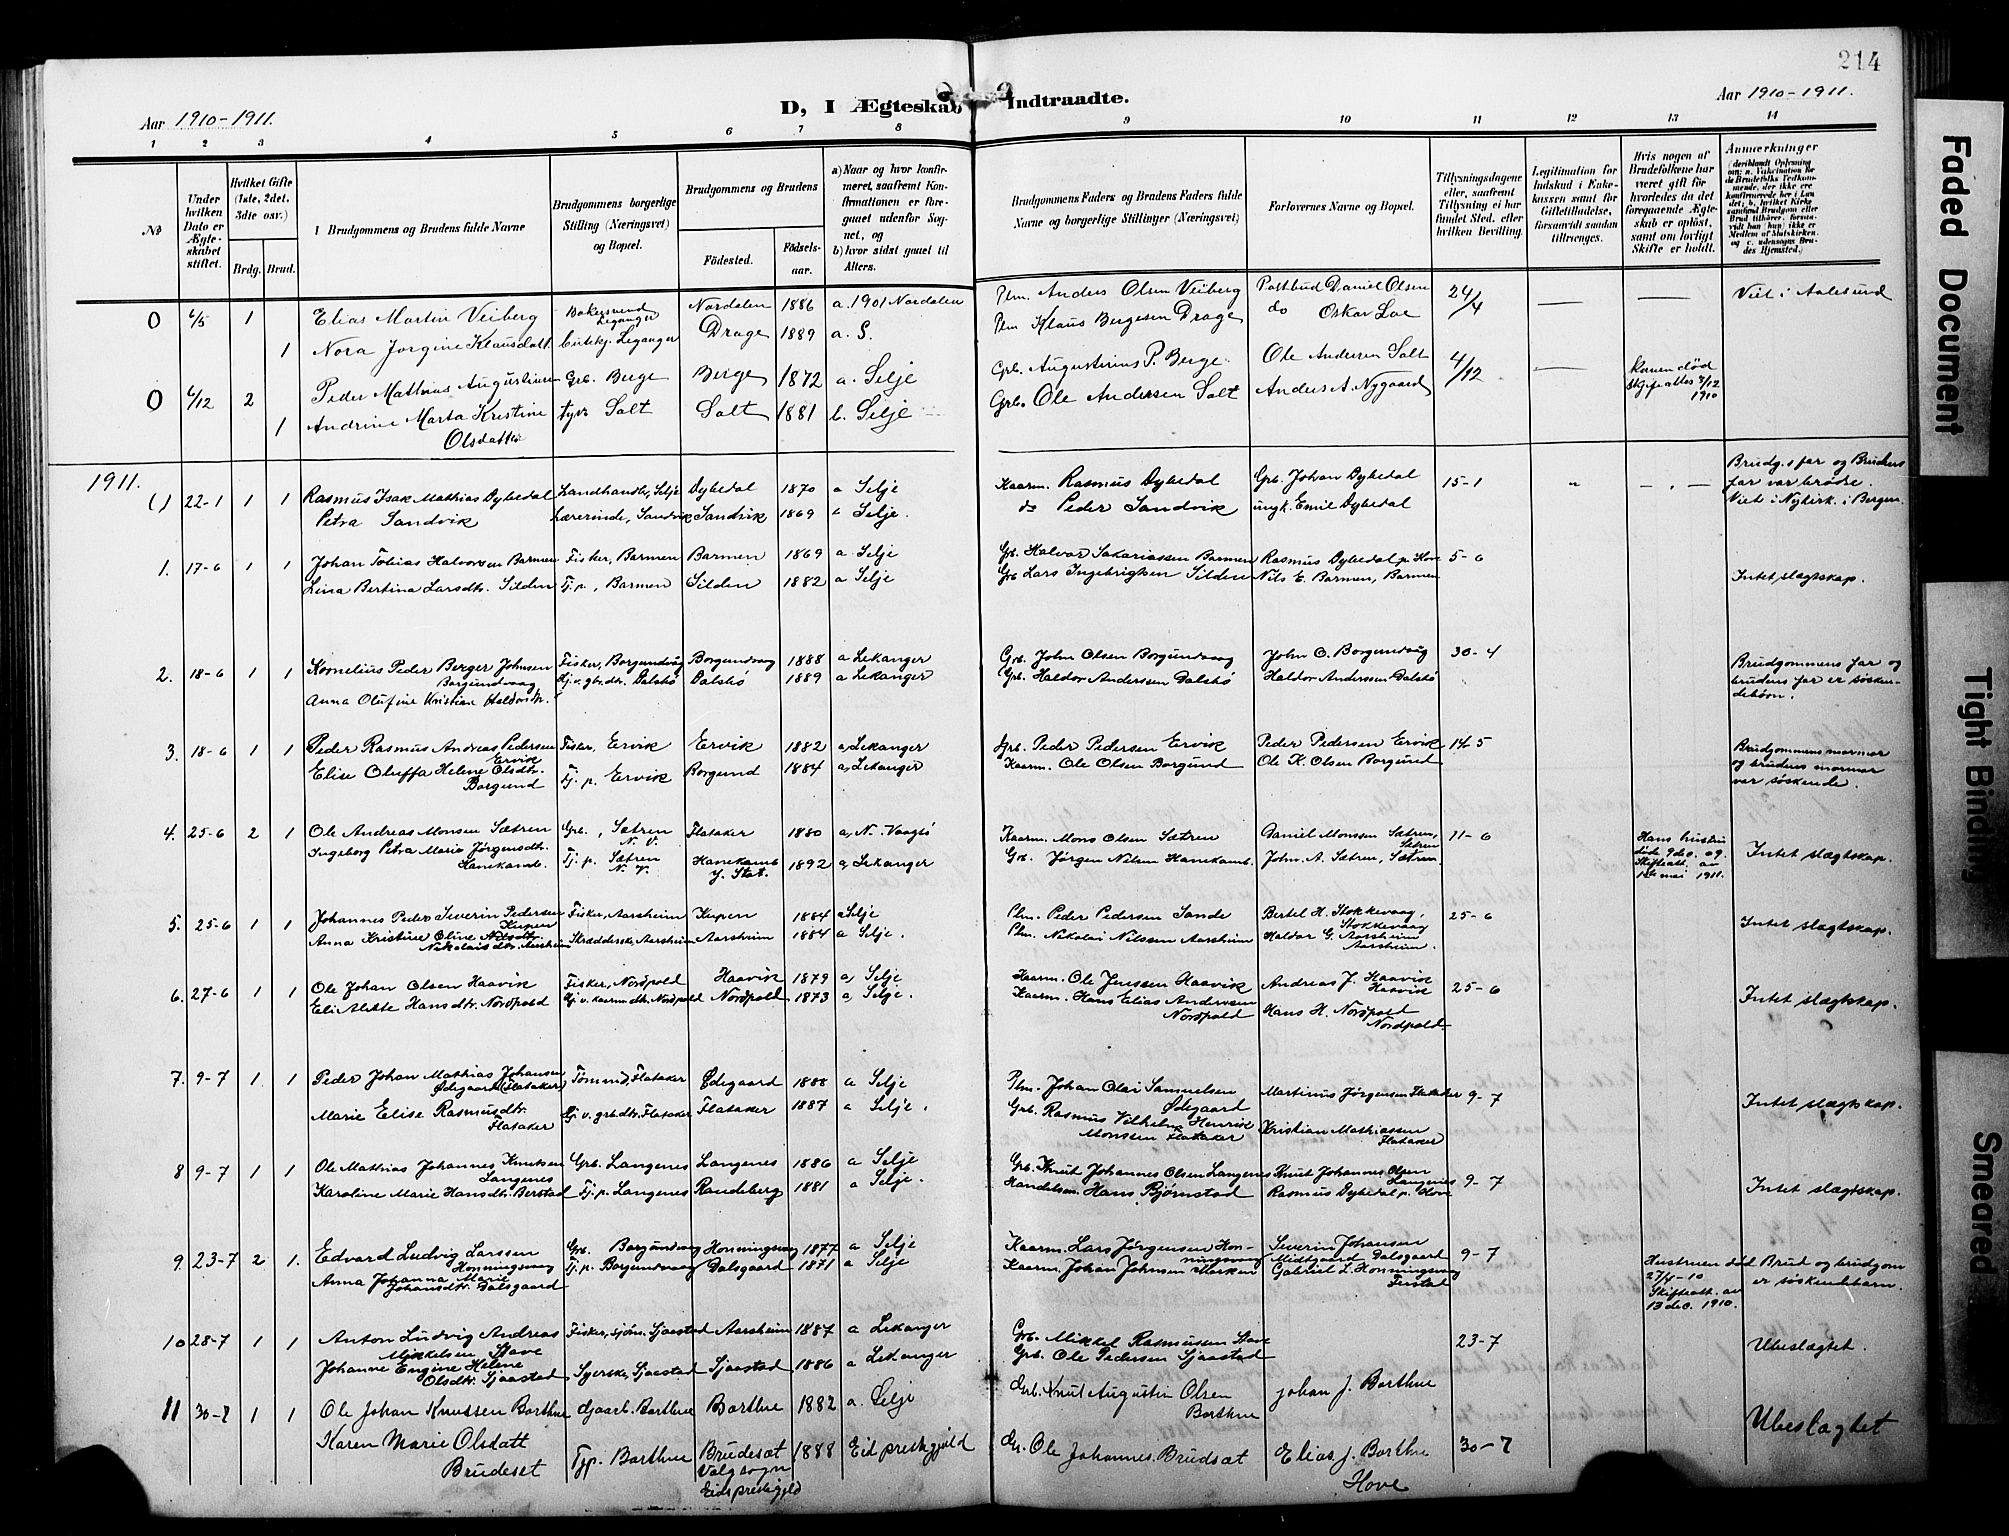 214
Aar 1910-1911.
D, I Ægteskab Indtraadte.
Aar 1910-1911.
1 2 3 4 5 6 7 8 9 10 11 12 13 14
No
Under hvilken Dato er Ægteskabet stiftet.
Hvilket Gifte (1ste, 2det, 3die osv.)
Brdg. Brud.
Brudgommens og Brudens fulde Navne
Brudgommens borgerlige Stilling (Næringsvei) og Bopæl.
Brudgommens og Brudens
Födested.
Födsels-aar.
a) Naar og hvor konfirmeret, saafremt Konfirmationen er foregaaet udenfor Sognet, og
b) hvor sidst gaaet til Alters.
Brudgommens Faders og Brudens Faders fulde Navne og borgerlige Stillinger (Næringsvei)
Forlovernes Navne og Bopæl.
Tillysningsdagene eller, saafremt Tillysning ei har fundet Sted, efter hvilken Bevilling.
Legitimation for Indskud i Enkekassen samt for Giftetilladelse, forsaavidt saadan tiltrænges.
Hvis nogen af Brudefolkene har været gift för hvorledes da det foregaaende Ægteskab er oplöst, samt om lovligt Skifte er holdt.
Anmærkninger
0 6/5 1 Elias Martin Veiberg Bakersvend Leganger Nordalen 1886 a. 1901 Nordalen Plm. Anders Olsen Veiberg Postbud Daniel Olsen 24/4
1 Nora Jorgine Klausdatt. Leganger Drage 1889 a. S. Plm Klaus Bergesen Drage do Oskar Loe Viet i Aalesund
0 6/12 2 Peder Mathias Augustinsen Grb. Berge Berge 1872 a. Selje Grb. Augustinus P. Berge Ole Andersen Salt 4/12 konen død
1 Andrine Marta Kristine Olsdatter Salt Salt 1881 b. Selje Grb. Ole Andersen Salt Anders A. Nygaard 1910
1911.
() 22-1 1 1 Rasmus Isak Mathias Dybedal Landhandl., Selje Dybedal 1870 a Selje Kaarm. Rasmus Dybedal Grb. Johan Dybedal 15-1 Brudg.s far og Brudens far var brødre.
Petra Sandvik Lærerinde, Sandvik Sandvik 1869 a Selje. do Peder Sandvik ungk. Emil Dybedal Viet i Nykirk. i Bergen
1. 17-6 1 1 Johan Tobias Halvorsen Barmen Fisker, Barmen Barmen 1869 a Selje Grb. Halvar Sakariassen Barmen Rasmus Dybedal p. Hove 5-6
Lina Bertina Larsdtr. Silden Tj. p., Barmen Silden 1882 a Selje Grb Lars Ingebrigtsen Silden Nils E. Barmen, Barmen Intet slægtskap.
2. 18-6 1 1 Kornelius Peder Berger Johnsen Borgundvaag Fisker, Borgundvåg Borgundvaag 1888 a Lekanger Grb. John Olsen Borgundvaag John O. Borgundvåg 30-4 Brudgommens far og brudens far er søskendebørn.
Anna Olufine Kristian Haldorsdtr. tj. v. gbr.dtr. Dalsbø Dalsbø 1889 a Lekanger Grb. Haldor Anderssen Dalsbø Haldor Anderssen Dalsbø
3. 18-6 1 1 Peder Rasmus Andreas Pedersen Ervik Fisker, Ervik Ervik 1882 a, Lekanger Grb. Peder Pedersen Ervik Peder Pedersen Ervik 14/5 Brudgommens mormor og brudens mormor var søskende.
Elise Oluffa Helene Olsdtr. Borgund Tj. p. Ervik Borgund 1884 a, Lekanger Kaarm. Ole Olsen Borgund Ole K. Olsen Borgund
4. 25-6 2 1 Ole Andreas Monsen Sætren Grb., Sætren N. V. Flataker 1880 a, N. Vaagsø Kaarm. Mons Olsen Sætren Daniel Monssen Sætren, Sætren 11-6 Hans hustru døde 9 dec. 09. Skifteatt. av 16 mai 1911. Intet slægtskap.
Ingeborg Petra Marie Jørgensdtr. Hanekamb. Tj. p. Sætren N. V. Hanekamb Y. Stat. 1892 a, Lekanger Grb. Jørgen Nilsen Hanekamb. John A. Sætren, Sætren
5. 25-6 1 1 Johannes Peder Severin Pedersen Kupen Fisker, Aarsheim Kupen 1884 a Selje Plm. Peder Pedersen Sande Bertel H. Stokkevaag, Stokkevaag 25-6 Intet slægtskap.
Anna Kristine Oline Nikolaisdtr. Aarsheim Skrædderske, Aarsheim Aarsheim 1884 a Selje. Plm. Nikolai Nilssen Aarsheim Haldor G. Aarsheim Aarsheim.
6. 27-6 1 1 Ole Johan Olsen Haavik Fisker, Nordpold Haavik 1879 a, Selje Kaarm. Ole Jenssen Haavik Andreas J. Haavik Haavik 25-6 Intet slægtskap.
Eli Alette Hansdtr. Nordpold tj. v. kaarm.dtr., Nordpold Nordpold 1873 a Selje. Kaarm. Hans Elias Anderssen Nordpold Hans H. Nordpold Nordpold
7. 9-7 1 1 Peder Johan Mathias Johansen Ødegaard (Flataker) Tømmd, Flataker Ødegaard 1888 a Selje Plm. Johan Olai Samuelsen Ødegaard Martinus Jørgensen Flataker 9-7 Intet slægtskap.
Marie Elise Rasmusdtr. Flataker tj. v. grb.dtr. Flataker Flataker 1887 a Selje. Grb. Rasmus Vilhelm Henrik Monssen Flataker Kristian Mathiassen Flataker
8 9-7 1 1 Ole Mathias Johannes Knutsen Langenes Grb. Langenes Langenes 1886 a Selje Grb. Knut Johannes Olsen Langenes Knut Johannes Olsen Langenes 9-7
Karoline Marie Hansdtr. Berstad Tj. p. Langenes Randeberg 1881 a Selje. Handelsm. Hans Bjørnstad Rasmus Dybedal p. Hove Intet slægtskap.
9. 23-7 2 1. Edvard Ludvig Larssen Honningsvaag Grb. Borgundvåg Honningsvaag 1877 a Selje Kaarm. Lars Jørgensen Honningsvaag Severin Johansen Midtgaard Dalsgaard 9-7 Hustruen død 27/4-10 Skifteatt. av 13 dec. 1910. Brud og brudgom er søskendebarn.
Anna Johanna Marie Johansdtr. Dalsgaard Tj. p. Borgundvaag Dalsgaard 1871 a Selje Kaarm. Johan Johnsen Gabriel L. Honningsvaag
10 28-7 1 1 Anton Ludvig Andreas Mikkelsen Stave Fisker, Sjaastad Aarsheim 1887 a Lekanger Grb. Mikkel Rasmussen Stave 23-7 Ubeslægtet.
Johanne Engine Helene Olsdtr. Sjaastad Syerske, Sjaastad Sjaastad 1886 a Lekanger Grb. Ole Pedersen Sjaastad
11 30-7 1 1 Ole Johan Knutsen Barthue Gaarb. Barthue Barthue 1882 a. Selje Grb. Knut Augustin Olsen Barthue Johan J. Barthue Ubeslagtet
Karen Marie Olsdatt Brudeset Tjp. Barthue Brudesæt Valg sogn Eids prestegjeld 1888 Eid prestegjeld Gr. Ole Johannes Brudsæt Elias J. Barthue Hove 30-7
Faded Document
Tight Binding
Smeared